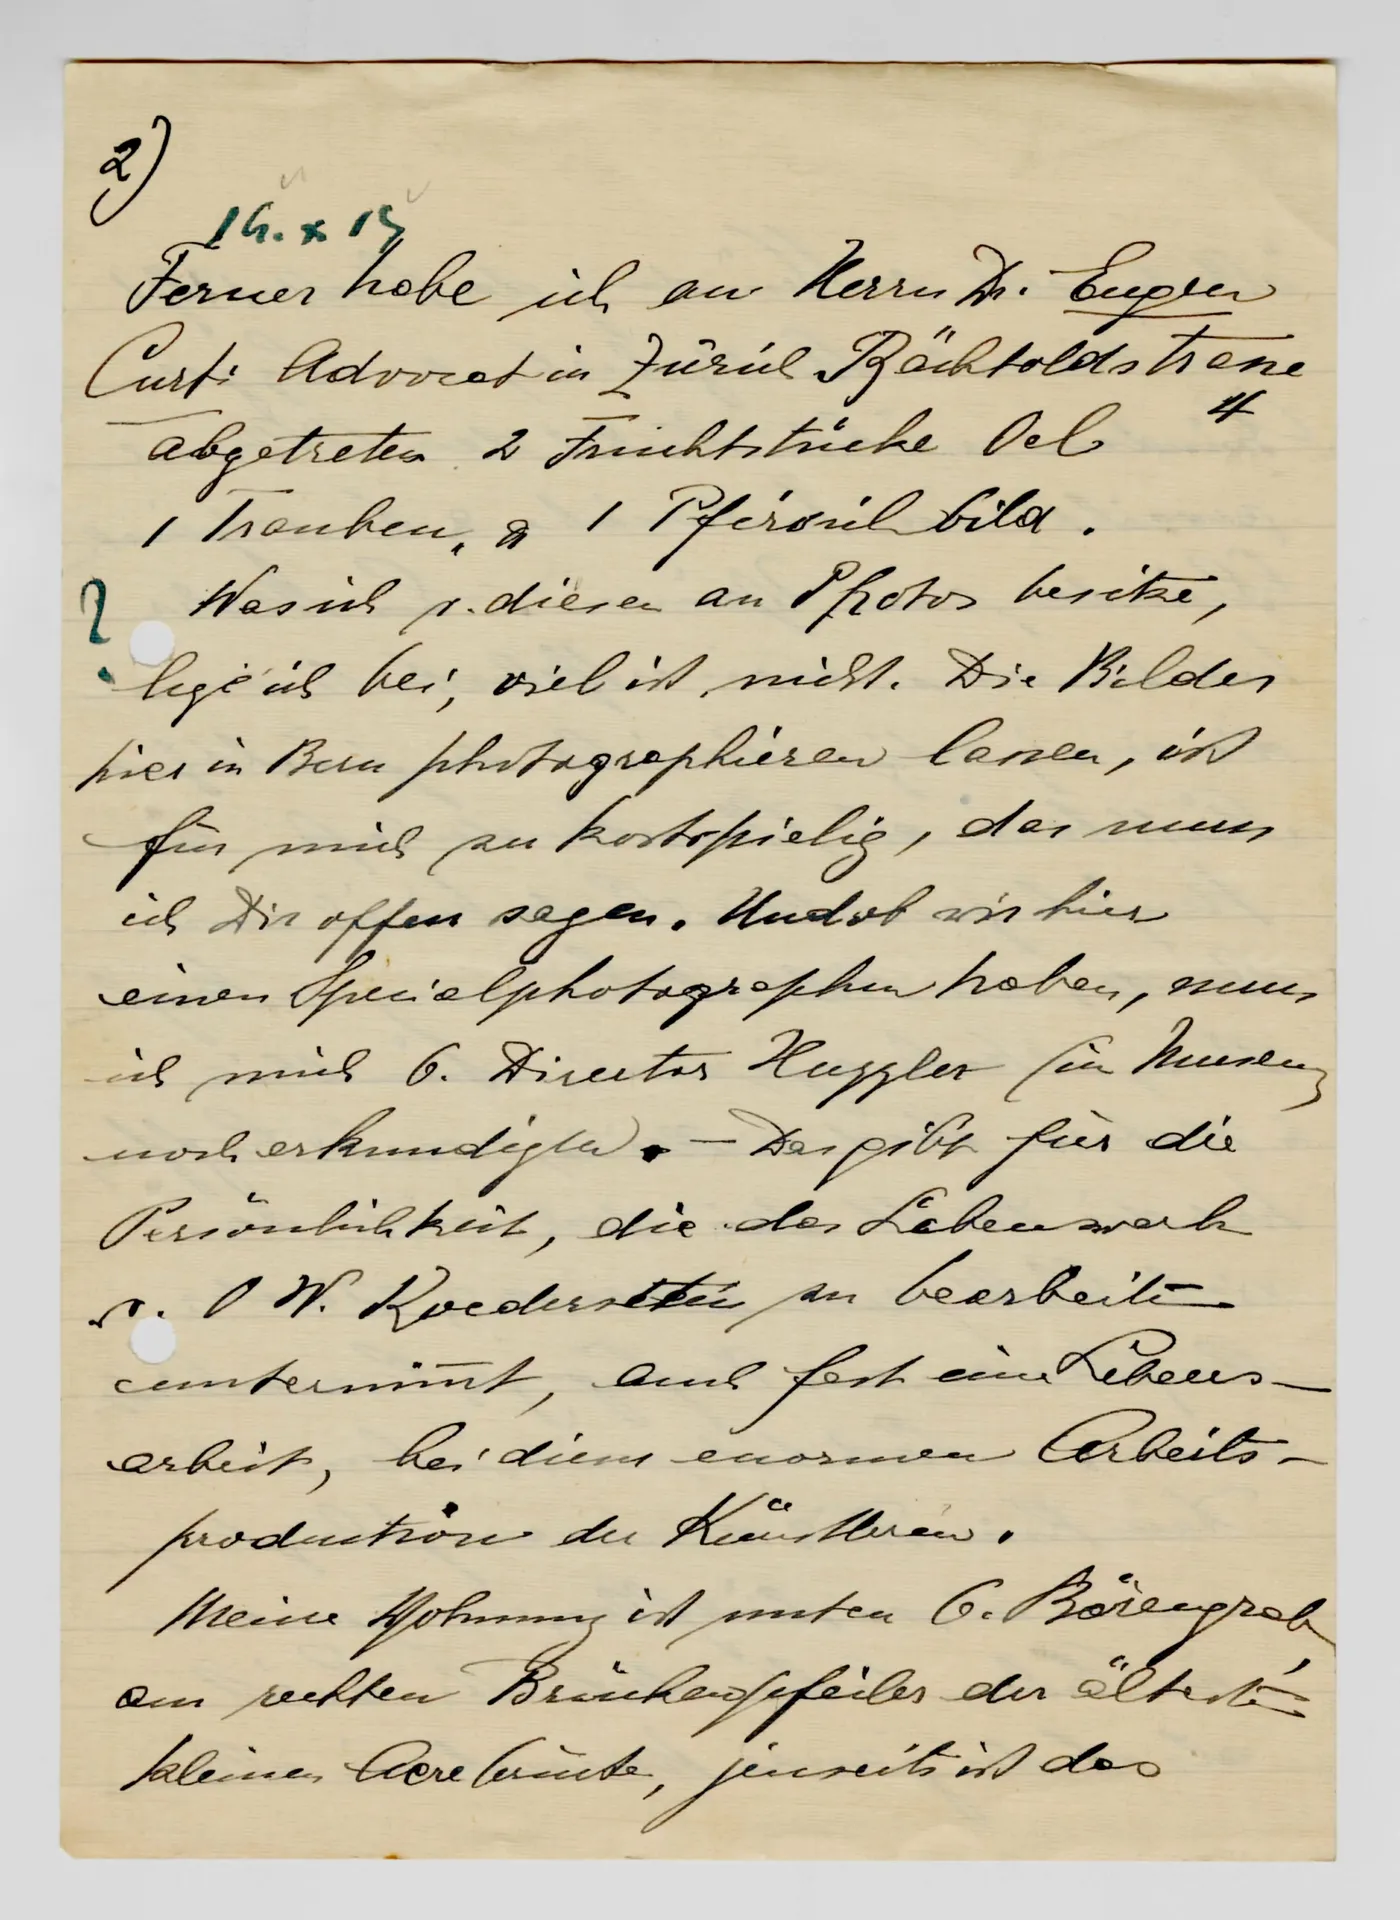 2)
14. x 15
Ferner habe ich an Herrn Dr. Eugen
Curti Advocat in Zürich Bächtoldstrasse
4
abgetreten 2 Fruchtstücke Oel
1 Trauben, & 1 Pfirsichbild.
? Was ich v. diesen an Photos besitze,
lege ich bei, viel ist nicht. Die Bilder
hier in Bern photographieren lassen, ist
für mich zu kostspielig, das muss
ich Dir offen sagen. Und ob wir hier
einen Specialphotographen haben, muss
ich mich b. Director Huggler (im Museum)
noch erkundigen. — Das gibt für die
Persönlichkeit, die das Lebenswerk
v. O W. Roederstein zu bearbeiten
unternim̅t, auch fast eine Lebens-
arbeit, bei dieser enormen Arbeits-
production der Künstlerin.
Meine Wohnung ist unten b. Bärengrab
am rechten Brückenpfeiler der ältesten
kleinen Aarebrücke, jenseits ist das